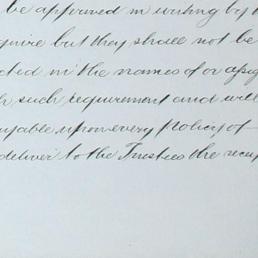 be approved in writing by t
quire but they shall not be
cted in the names of or assig
h such requirement and will
yable upon every Policy of
deliver to the Trustees the recei